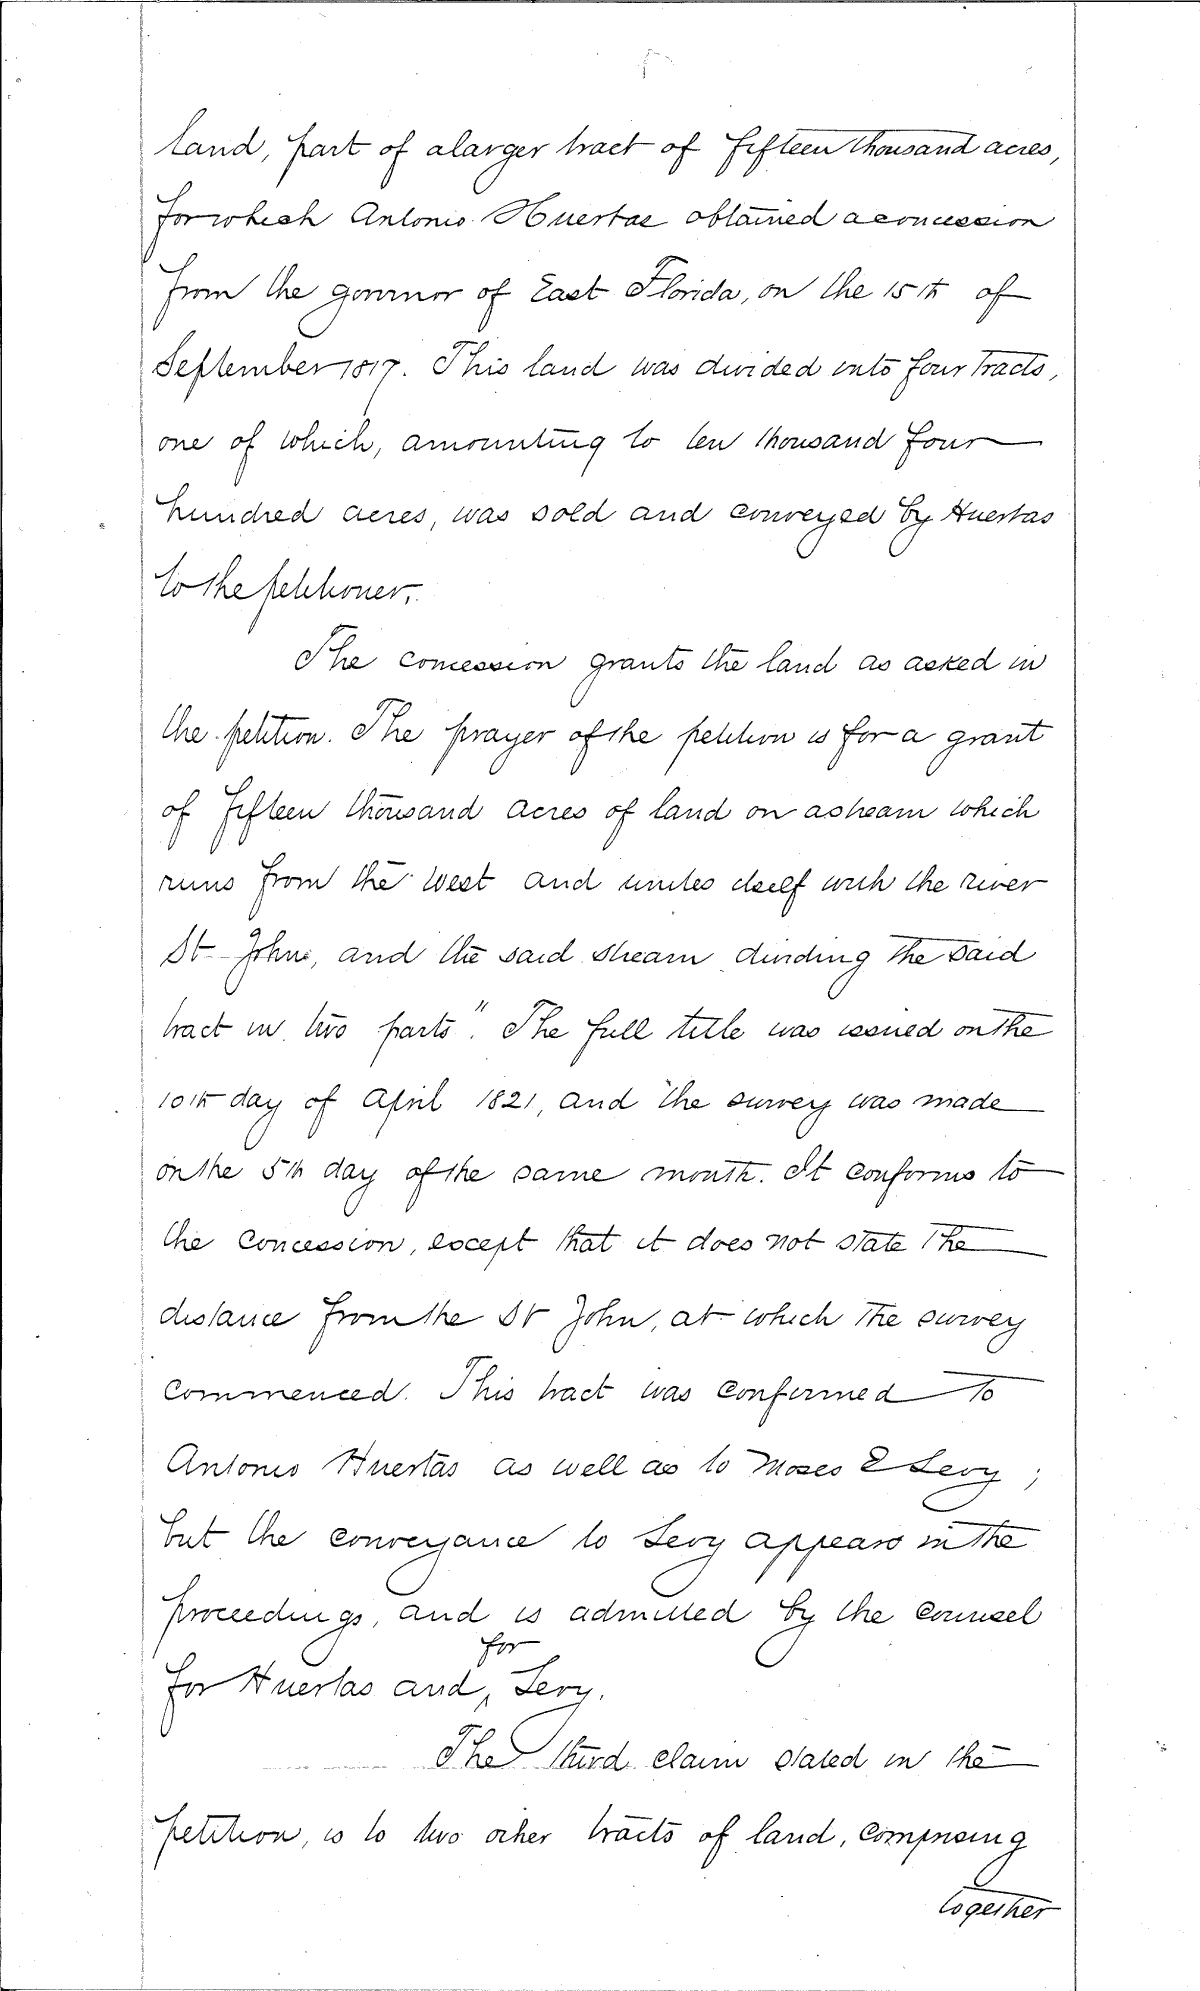 land, part of a larger tract of fifteen thousand acres,
for which Antonio Huertas obtained a concession
from the governor of East Florida, on the 15th of
September 1817. This land was divided into four tracts,
one of which, amounting to ten thousand four
hundred acres, was sold and conveyed by Huertas
to the petitioner.
The concession grants the land as asked in
the petition. The prayer of the petition is for a grant
of fifteen thousand acres of land on a stream which
runs from the west and unites itself with the river
St. Johns, and the said stream dividing the said
tract in two parts". The full title was issued on the
10th day of April 1821, and the survey was made
on the 5th day of the same month. It conforms to
the concession, except that it does not state the
distance from the St John, at which the survey
commenced. This tract was confirmed to
Antonio Huertas as well as to Moses E Levy;
but the conveyance to Levy appears in the
proceedings, and is admitted by the counsel
for Huertas and for Levy.
The third claim stated in the
petition, is to two other tracts of land, comprising
together